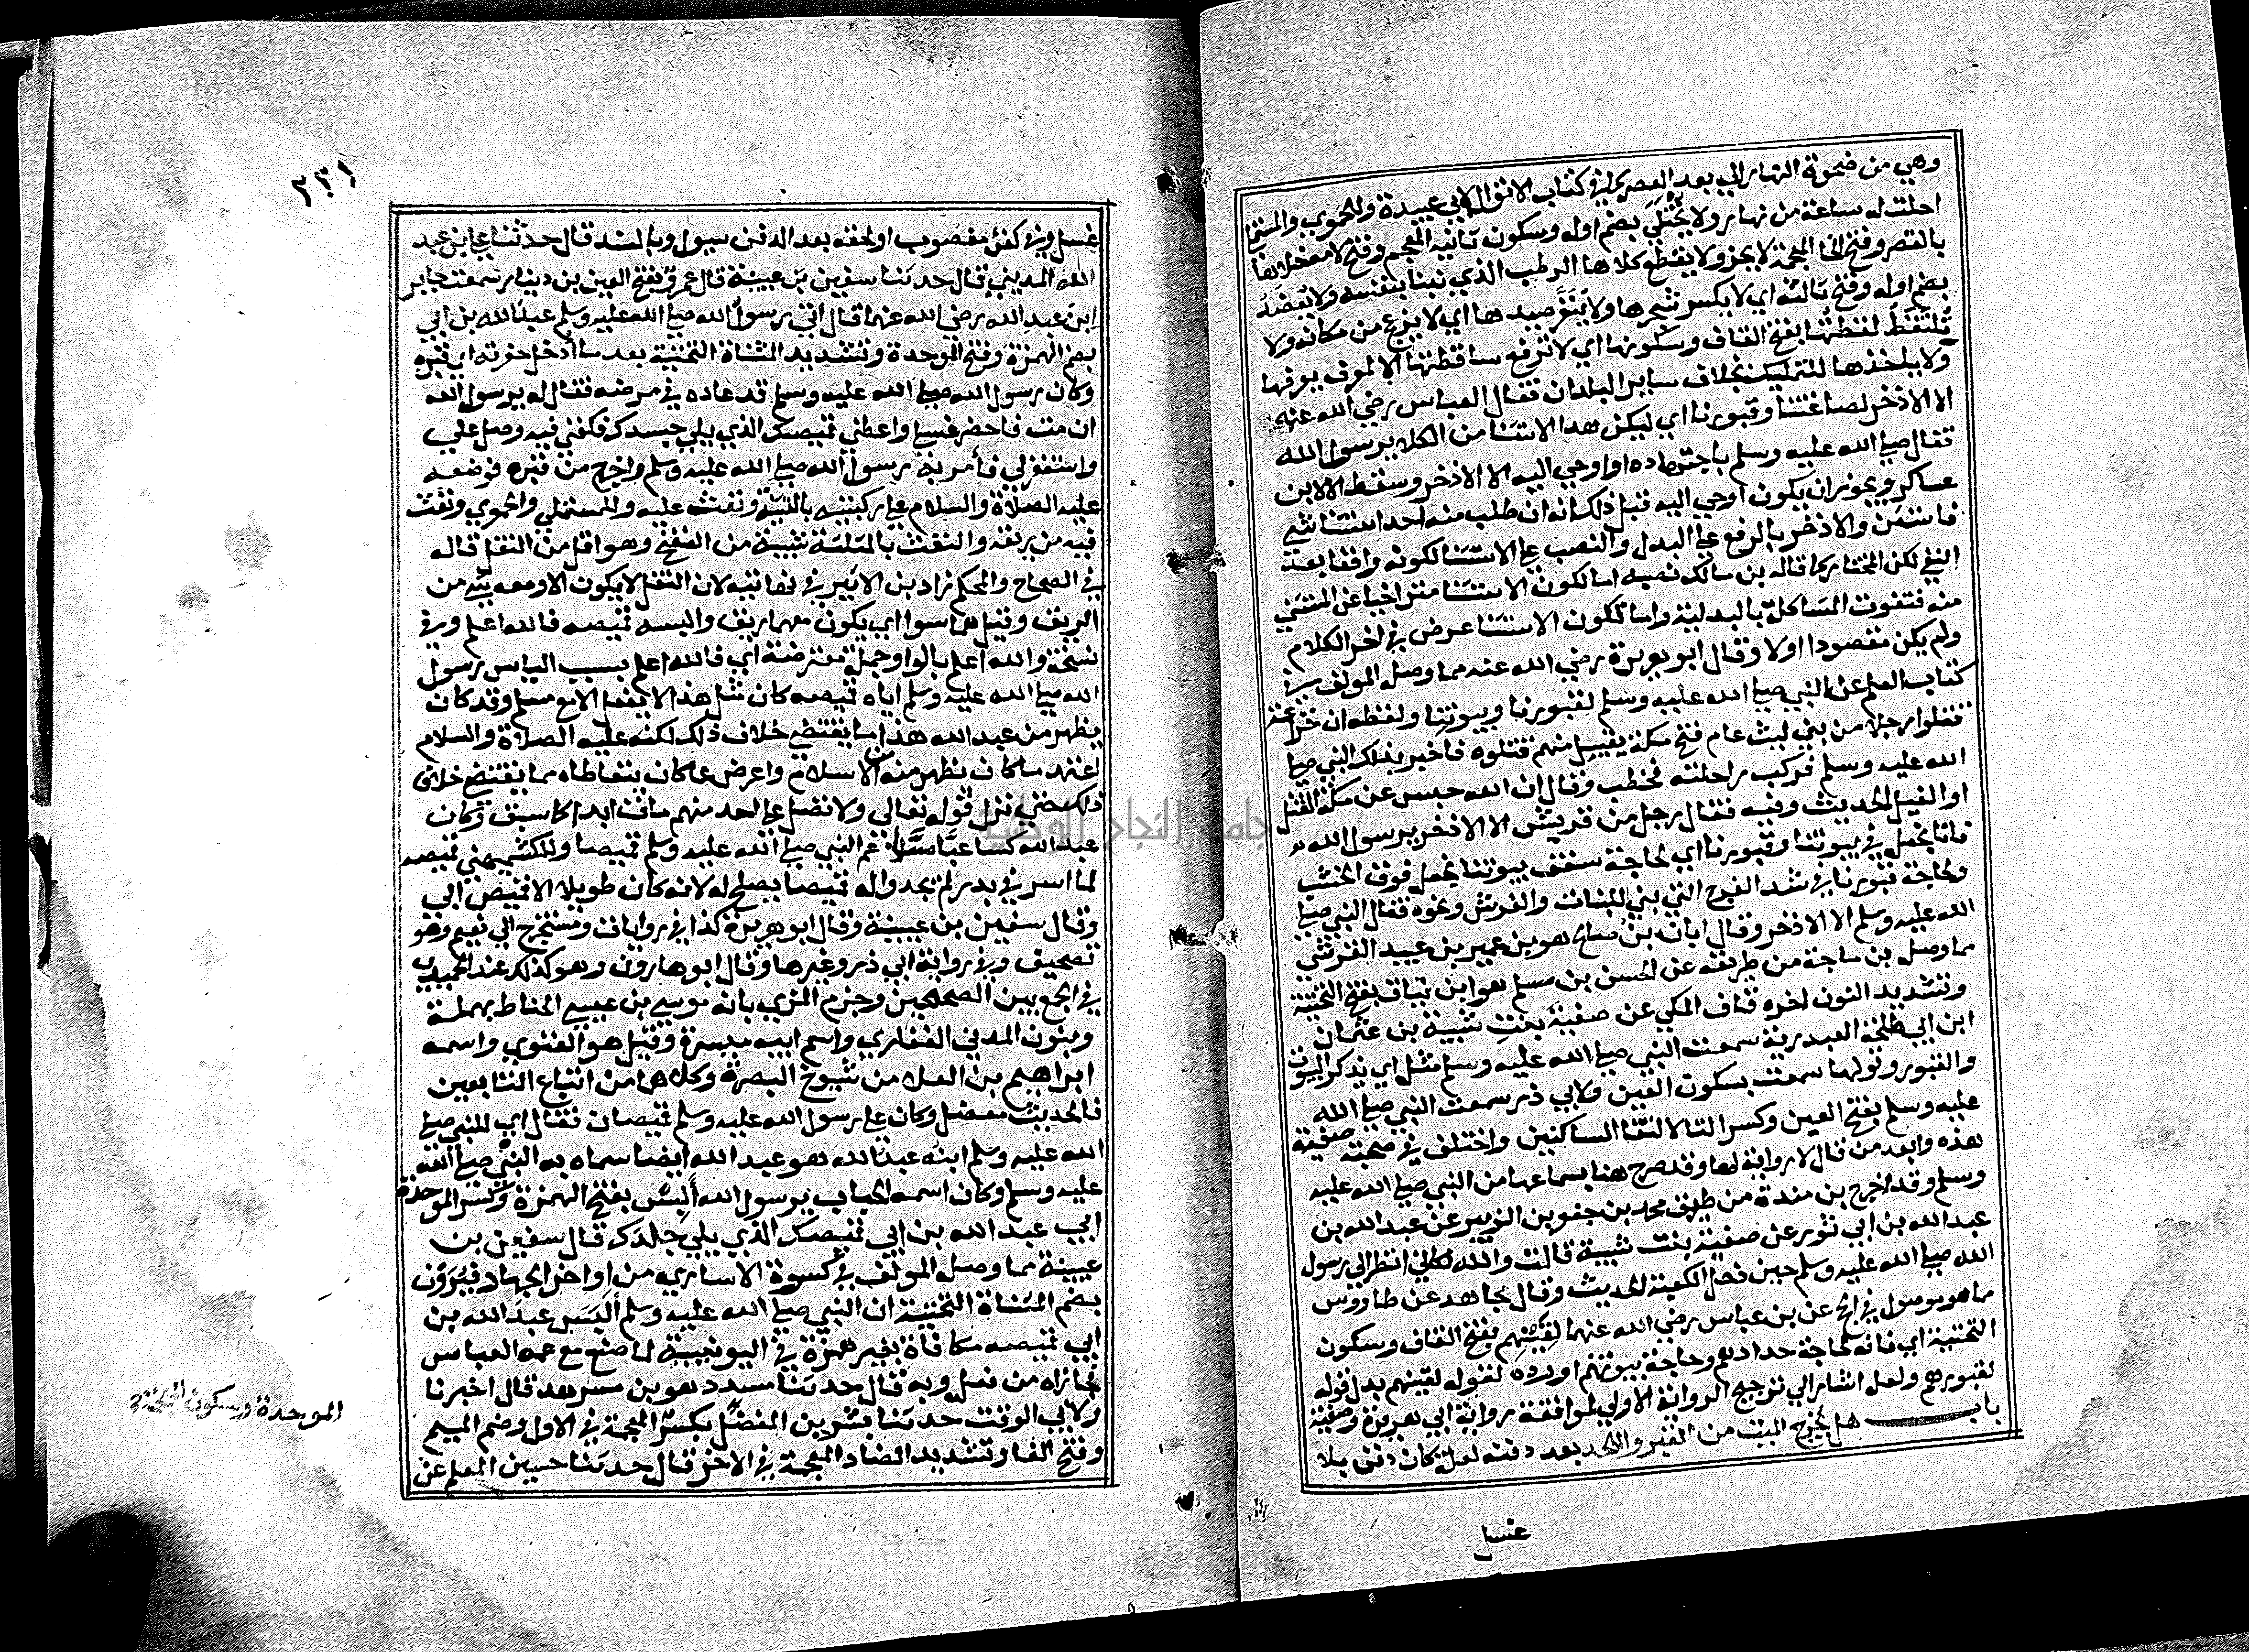 وهي من ضحوة النهار الي بعد العصر كما في كتاب الاموال لابي عبيدة وللحموي والمستملي
احلت له ساعة من نهار ولا يختلي بضم اوله وسكون ثانيه المعجم وفتح لامه خلاها
بالقصر وفتح الخا المعجمة لا يجز ولا يقطع كلاها الرطب الذي نبتا بنفسه ولا يعضد
بضم اوله وفتح ثالثه اي لا يكسر شجرها ولا ينفر صيدها اي لا يزعج من مكانه ولا
تلتقط لقطتها بفتح القاف وسكونها اي لا ترفع ساقطتها الا لمعرف يعرفها
ولا ياخذها للتمليك بخلاف ساير البلدان فقال العباس رضي الله عنه
الا الاذخر لصاغتنا وقبورنا اي ليكن هذا الاستثنا من الكلا يرسول الله
فقال صلي الله عليه وسلم باجتهاده او اوحي اليه الا الاذخر وسقط الا لابن
عساكر ويجوز ان يكون اوحي اليه قبل ذلك انه ان طلب منه احد استثنا شي
فاستثن والاذخر بالرفع علي البدل والنصب علي الاستثنا لكونه واقفا بعد
النفي لكن المختار كما قاله بن مالك نصبه اما لكون الاستثنا متراخيا عن المستثني
منه فتفوت المشاكلة بالبدلية واما لكون الاستثنا عرض في اخر الكلام
ولم يكن مقصودا اولا وقال ابو هريرة رضي الله عنه مما وصله المولف في
كتاب العلم عن النبي صلي الله عليه وسلم لقبورنا وبيوتنا ولفظه ان خزاعة
قتلوا رجلا من بني ليث عام فتح مكة بقتيل منهم قتلوه فاخبر بذلك النبي صلي
الله عليه وسلم فركب راحلته فخطب وقال ان الله حبس عن مكة القتل
او الفيل الحديث وفيه فقال رجل من قريش الا الاذخر يرسول الله
فانا نجعله في بيوتنا وقبورنا اي لحاجة سقف بيوتنا نجعل فوق الخشب
ولحاجة قبورنا في سد الفرج التي بين اللبنات والفرش ونحوه فقال النبي صلي
الله عليه وسلم الا الاذخر وقال ابان بن صالح هو بن عمير بن عبيد القرشي
مما وصله بن ماجة من طريقه عن الحسن بن مسلم هو ابن يناق بفتح التحتية
وتشديد النون اخره قاف المكي عن صفية بنت شيبة بن عثمان
ابن ابي طلحة العبدرية سمعت النبي صلي الله عليه وسلم مثله اي يذكر البيوت
والقبور وقولها سمعت بسكون العين ولابي ذر سمعت النبي صلي الله
عليه وسلم بفتح العين وكسر التا لالتقا الساكنين واختلف في صحبة صفية
هذه وابعد من قال لا رواية لها وقد صرح هنا بسماعها من النبي صلي الله عليه
وسلم وقد اخرج بن مندة من طريق محمد بن جعفر بن الزبير عن عبدالله بن
عبدالله بن ابي ثور عن صفية بنت شيبة قالت والله لكاني انظر الي رسول
الله صلي الله عليه وسلم حين دخل الكعبة الحديث وقال مجاهد عن طاووس
مما هو موصول في الحج عن بن عباس رضي الله عنهما لقينهم بفتح القاف وسكون
التحتية اي فانه لحاجة حدادهم وحاجة بيوتهم اورده لقوله لقينهم بدل قوله
لقبورهم ولعله اشار الي ترجيح الرواية الاولي لموافقة رواية ابي هريرة وصفية
باب هل يخرج الميت من القبر واللحد بعد دفنه لعلة كان دفن بلا
غسل
٣٢١
غسل او في كفن مغصوب او لحقه بعد الدفن سيول وبالسند قال حدثنا علي بن عبد
الله المديني قال حدثنا سفين بن عيينة قال عمرو بفتح العين بن دينار سمعت جابر
ابن عبد الله رضي الله عنهما قال اتي رسول الله صلي الله عليه وسلم عبدالله بن ابي
بضم الهمزة وفتح الموحدة وتشديد المثناة التحتية بعد ما ادخل حفرته اي قبره
وكان رسول الله صلي الله عليه وسلم قد عاده في مرضه فقال له يرسول الله
ان مت فاحضر غسلي واعطني قميصك الذي يلي جسدك فكفني فيه وصل علي
واستغفر لي فأمر به رسول الله صلي الله عليه وسلم واخرج من قبره فوضعه
عليه الصلاة والسلام علي ركبتيه بالتثنية ونفث عليه وللمستملي والحموي ونفث
فيه من ريقه والنفث بالمثلثة شبيه من النفخ وهو اقل من التفل قاله
في الصحاح والمحكم زاد بن الاثير في نهايته لان التفل لا يكون الا ومعه شي من
الريق وقيل هما سوا اي يكون معهما ريق والبسه قميصه فالله اعلم وفي
نسخة والله اعلم بالواو جملة معترضة اي فالله اعلم بسبب الباس رسول
الله صلي الله عليه وسلم اياه قميصه كان مثل هذا لا يفعل الا مع مسلم وقد كان
يظهر من عبدالله هذا ما يقتضي خلاف ذلك لكنه عليه الصلاة والسلام
اعتمد ما كان يظهر منه من الاسلام واعرض عما كان يتعاطاه مما يقتضي خلاف
ذلك حتي نزل قوله تعالي ولا تصل علي احد منهم مات ابدا كما سبق وكان
عبدالله كسا عباسا عم النبي صلي الله عليه وسلم قميصا وللكشميهني قميصه
لما اسر في بدر لم يجدوا له قميصا يصلح له لانه كان طويلا الا قميص ابي
وقال سفين بن عيينة وقال ابو هريرة كذا في روايات ومستخرج ابي نعيم وهو
تصحيف وفي رواية ابي ذر وغيرها وقال ابو هارون وهو كذلك عند الحميدي
في الجمع بين الصحيحين وجزم المزي بانه موسي بن عيسي الحناط بمهملة
وبنون المدني الغفاري واسم ابيه ميسرة وقيل هو الغنوي واسمه
ابراهيم بن العلا من شيوخ البصرة وكلاهما من اتباع التابعين
فالحديث معضل وكان علي رسول الله عليه وسلم قميصان فقال اي للنبي صلي
الله عليه وسلم ابنه عبدالله هو عبد الله ايضا سماه به النبي صلي الله
عليه وسلم وكان اسمه الحباب يرسول الله ألبس بفتح الهمزة وكسر الموحدة
ابي عبد الله بن ابي قميصك الذي يلي جلدك قال سفين بن
عيينة مما وصله المولف في كسوة الاساري من اواخر الجهاد فيرون
بضم المثناة التحتية ان النبي صلي الله عليه وسلم ألبس عبدالله بن
ابي قميصه مكافاة بغير همزة في اليونينية لما صنع مع عمه العباس
فجازاه من فعله وبه قال حدثنا مسدد هو بن مسرهد قال اخبرنا
ولابي الوقت حدثنا بشر بن المفضل بكسر المعجمة في الاول وضم الميم
وفتح الفا وتشديد الضاد المعجمة في الاخر قال حدثنا حسين المعلم عن
الموحدة وسكون المعجمة
جامعة النجاح الوطنية